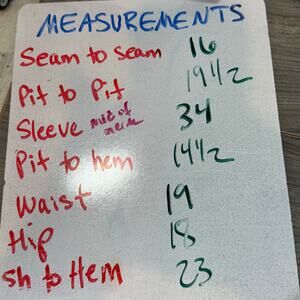 MEASUREMENTS
Seam to seam 16
Pit to Pit 19 1/2
Sleeve mid of neck 34
Pit to hem 14 1/2
Waist 19
Hip 18
sh to Hem 23